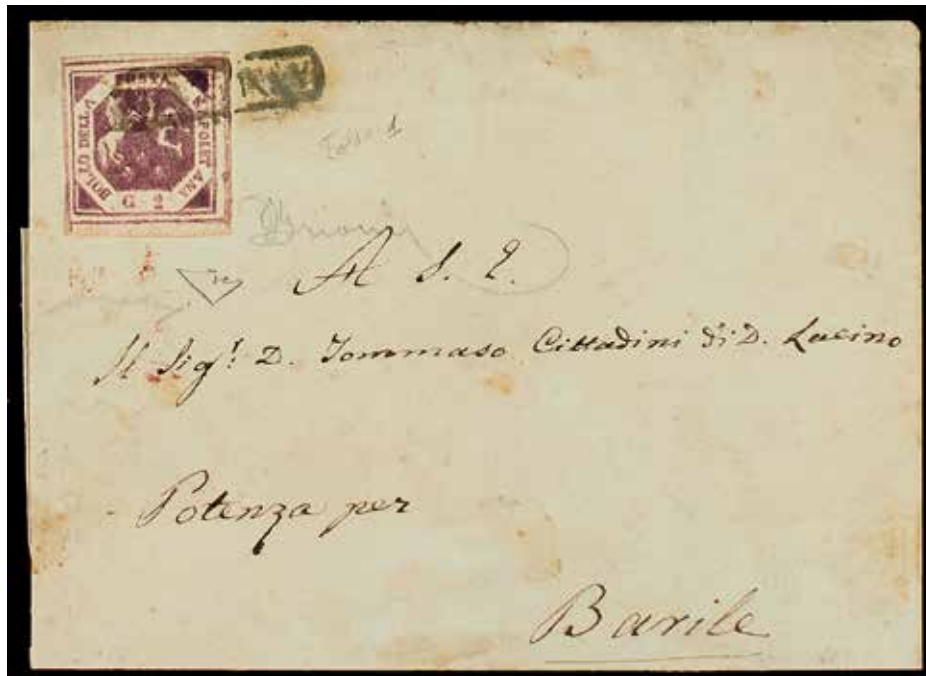 BOLLO DELLA POSTA NAPOLETANA
G 2
A S. E.
Il Sigr. D. Tommaso Cittadini di D. Lucino
Potenza per
Barile